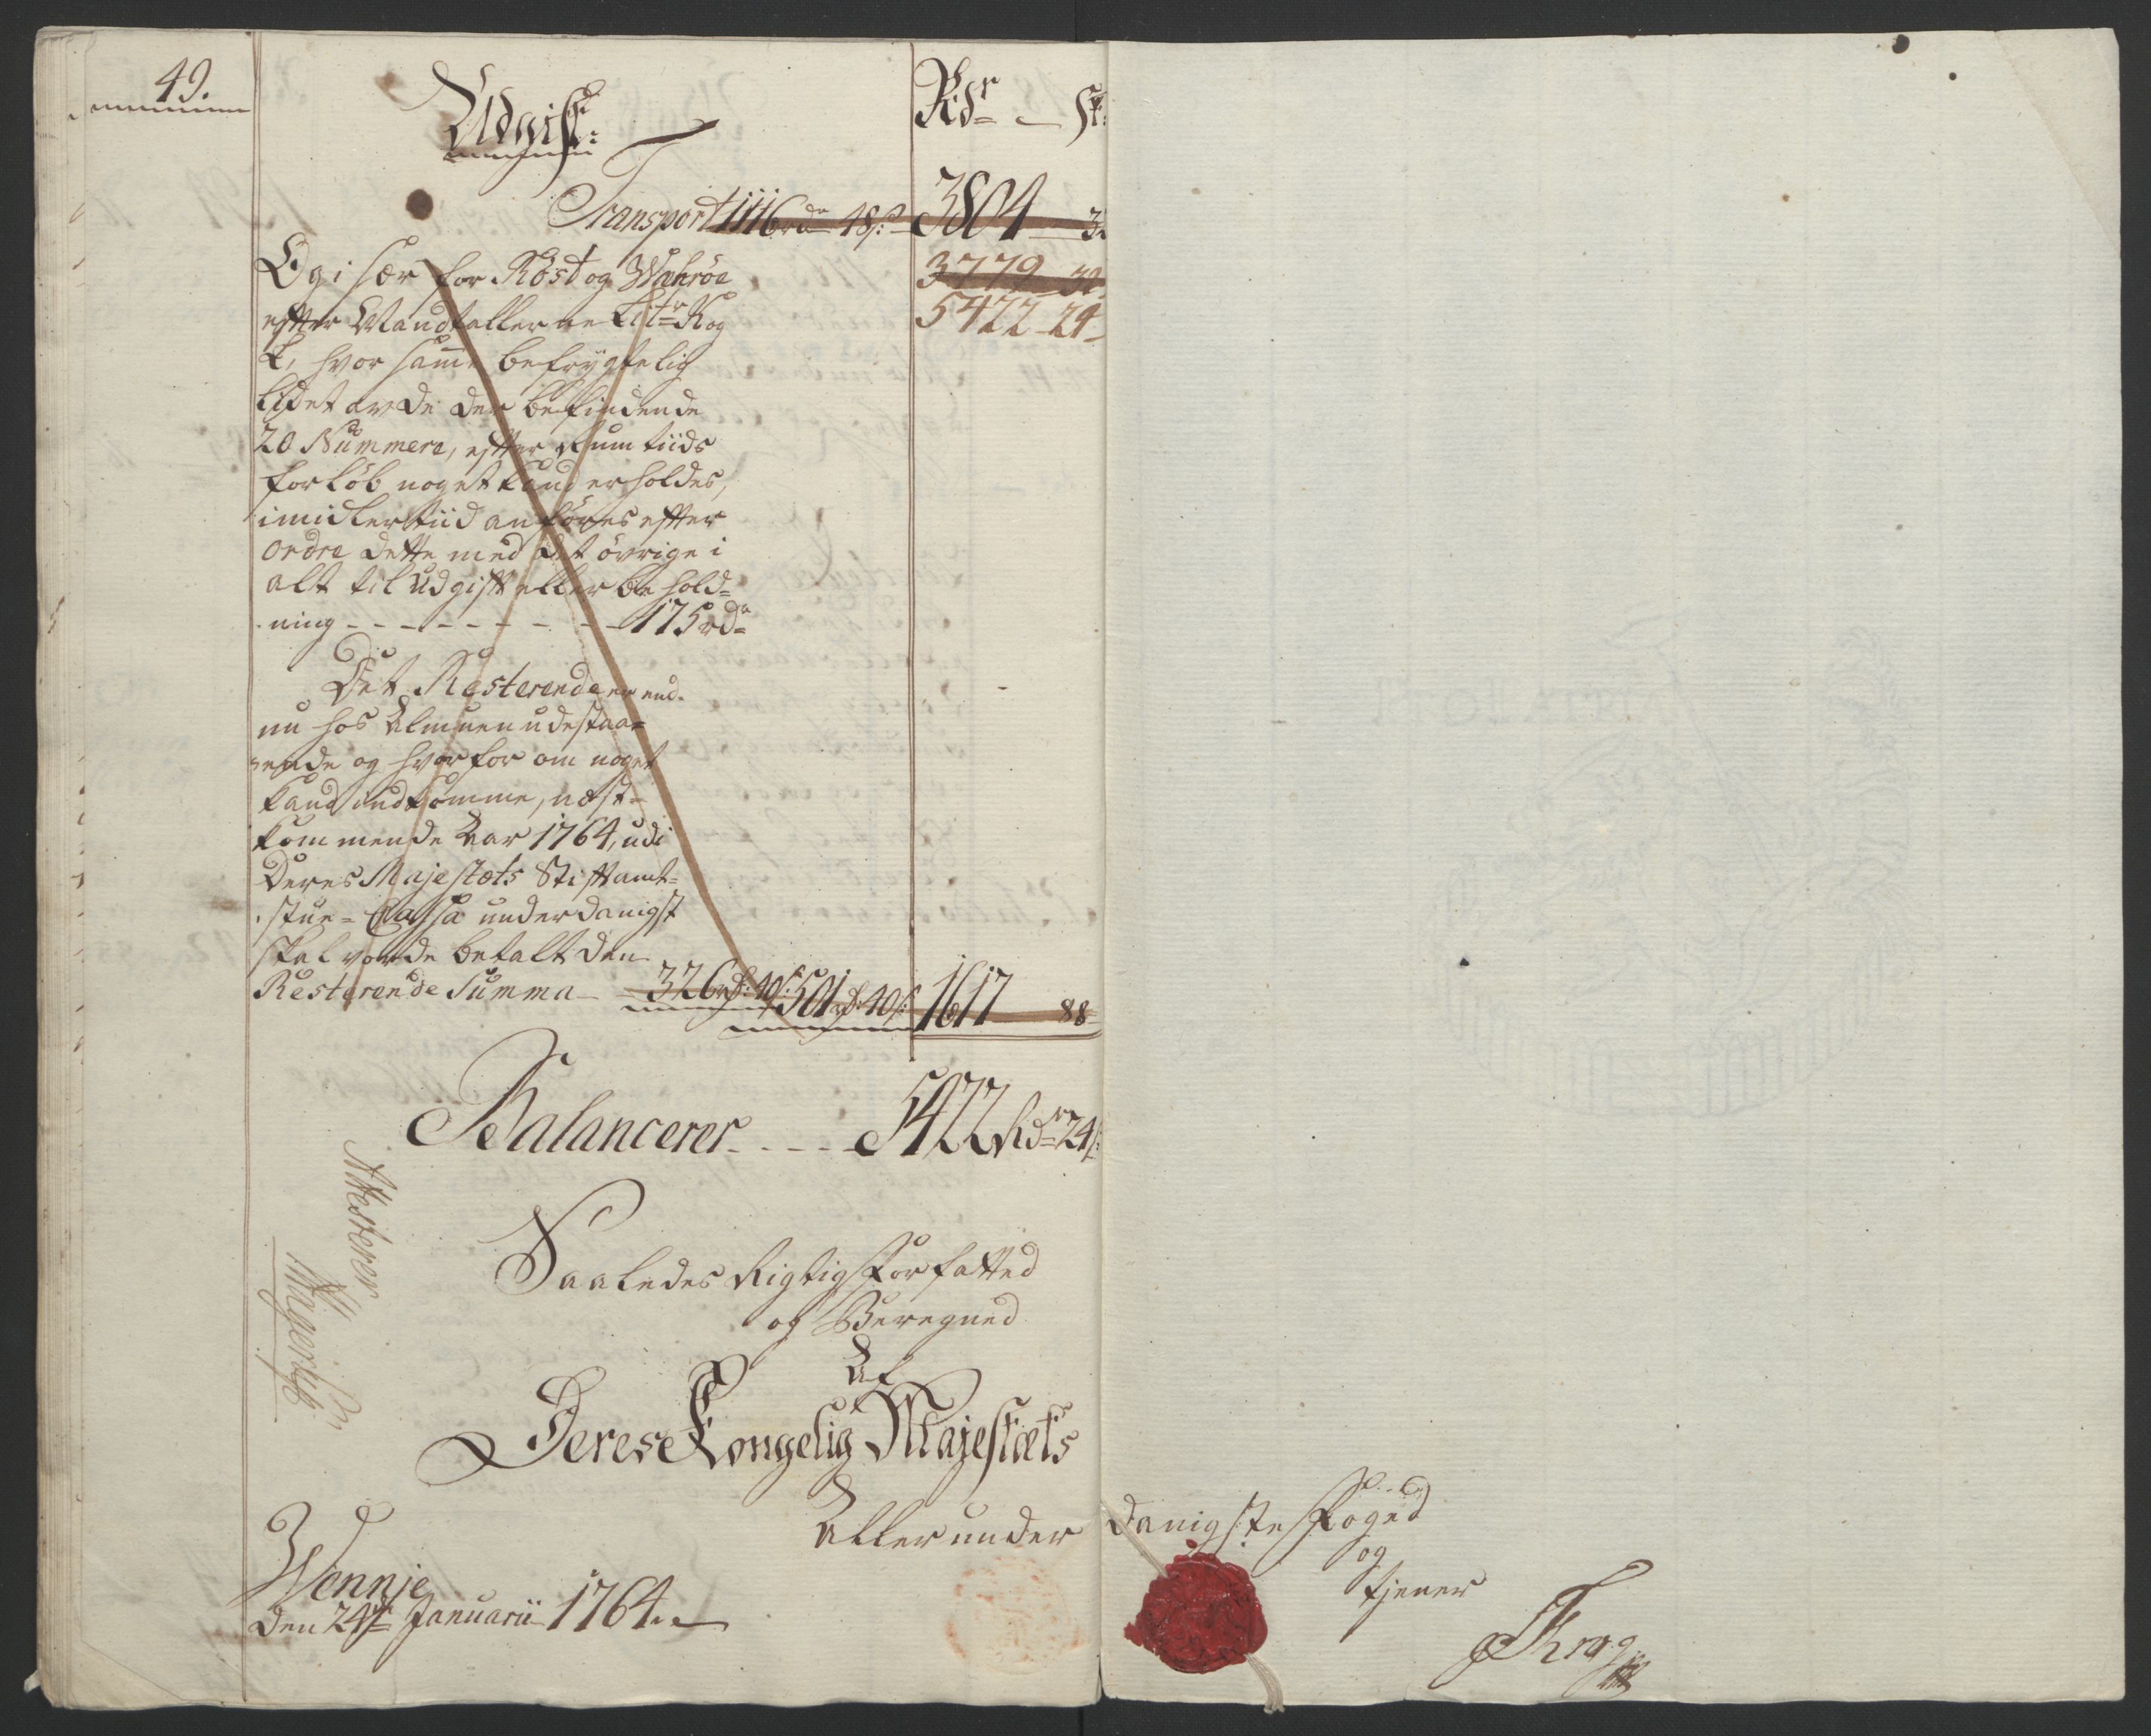 49.
Udgift:
Rdr – s:
Transport 1116 rdr 48 s: 3804
Og i sær for Röst og Wæhröe
3779 32
efter Mandtallerne Litr K og
5422 24
L, hvor samme befrygtelig
lidet av de der befindende
20 Nummere, efter Rum tiids
forløb noget kand erholdes,
imidlertiid anføres efter
ordre dette med det øvrige i
alt til udgift eller behold=
ning - - - - - - - - - 175 rdr
Det Resterende er end.
nu hos Almuen udestaa=
ende og hvorfor om noget
kand indkomme, næst=
kommende Aar 1764, udi
Deres Majestæts Stiftamt=
stue = Cassa underdanigst
skal vorde betalt den
Resterende Summa – 326 rd: 40 s: 501 rd: 40 s: 1617 88
Balancerer - - - - 5422 Rdr 24 s:
Attesterer
Saaledes Rigtig forfatted
og Beregned
Af
Deres Kongelig Majestæts
Allerunder danigste Foged
og
tjener
Wennje
den 24de Januarii 1764
Krog